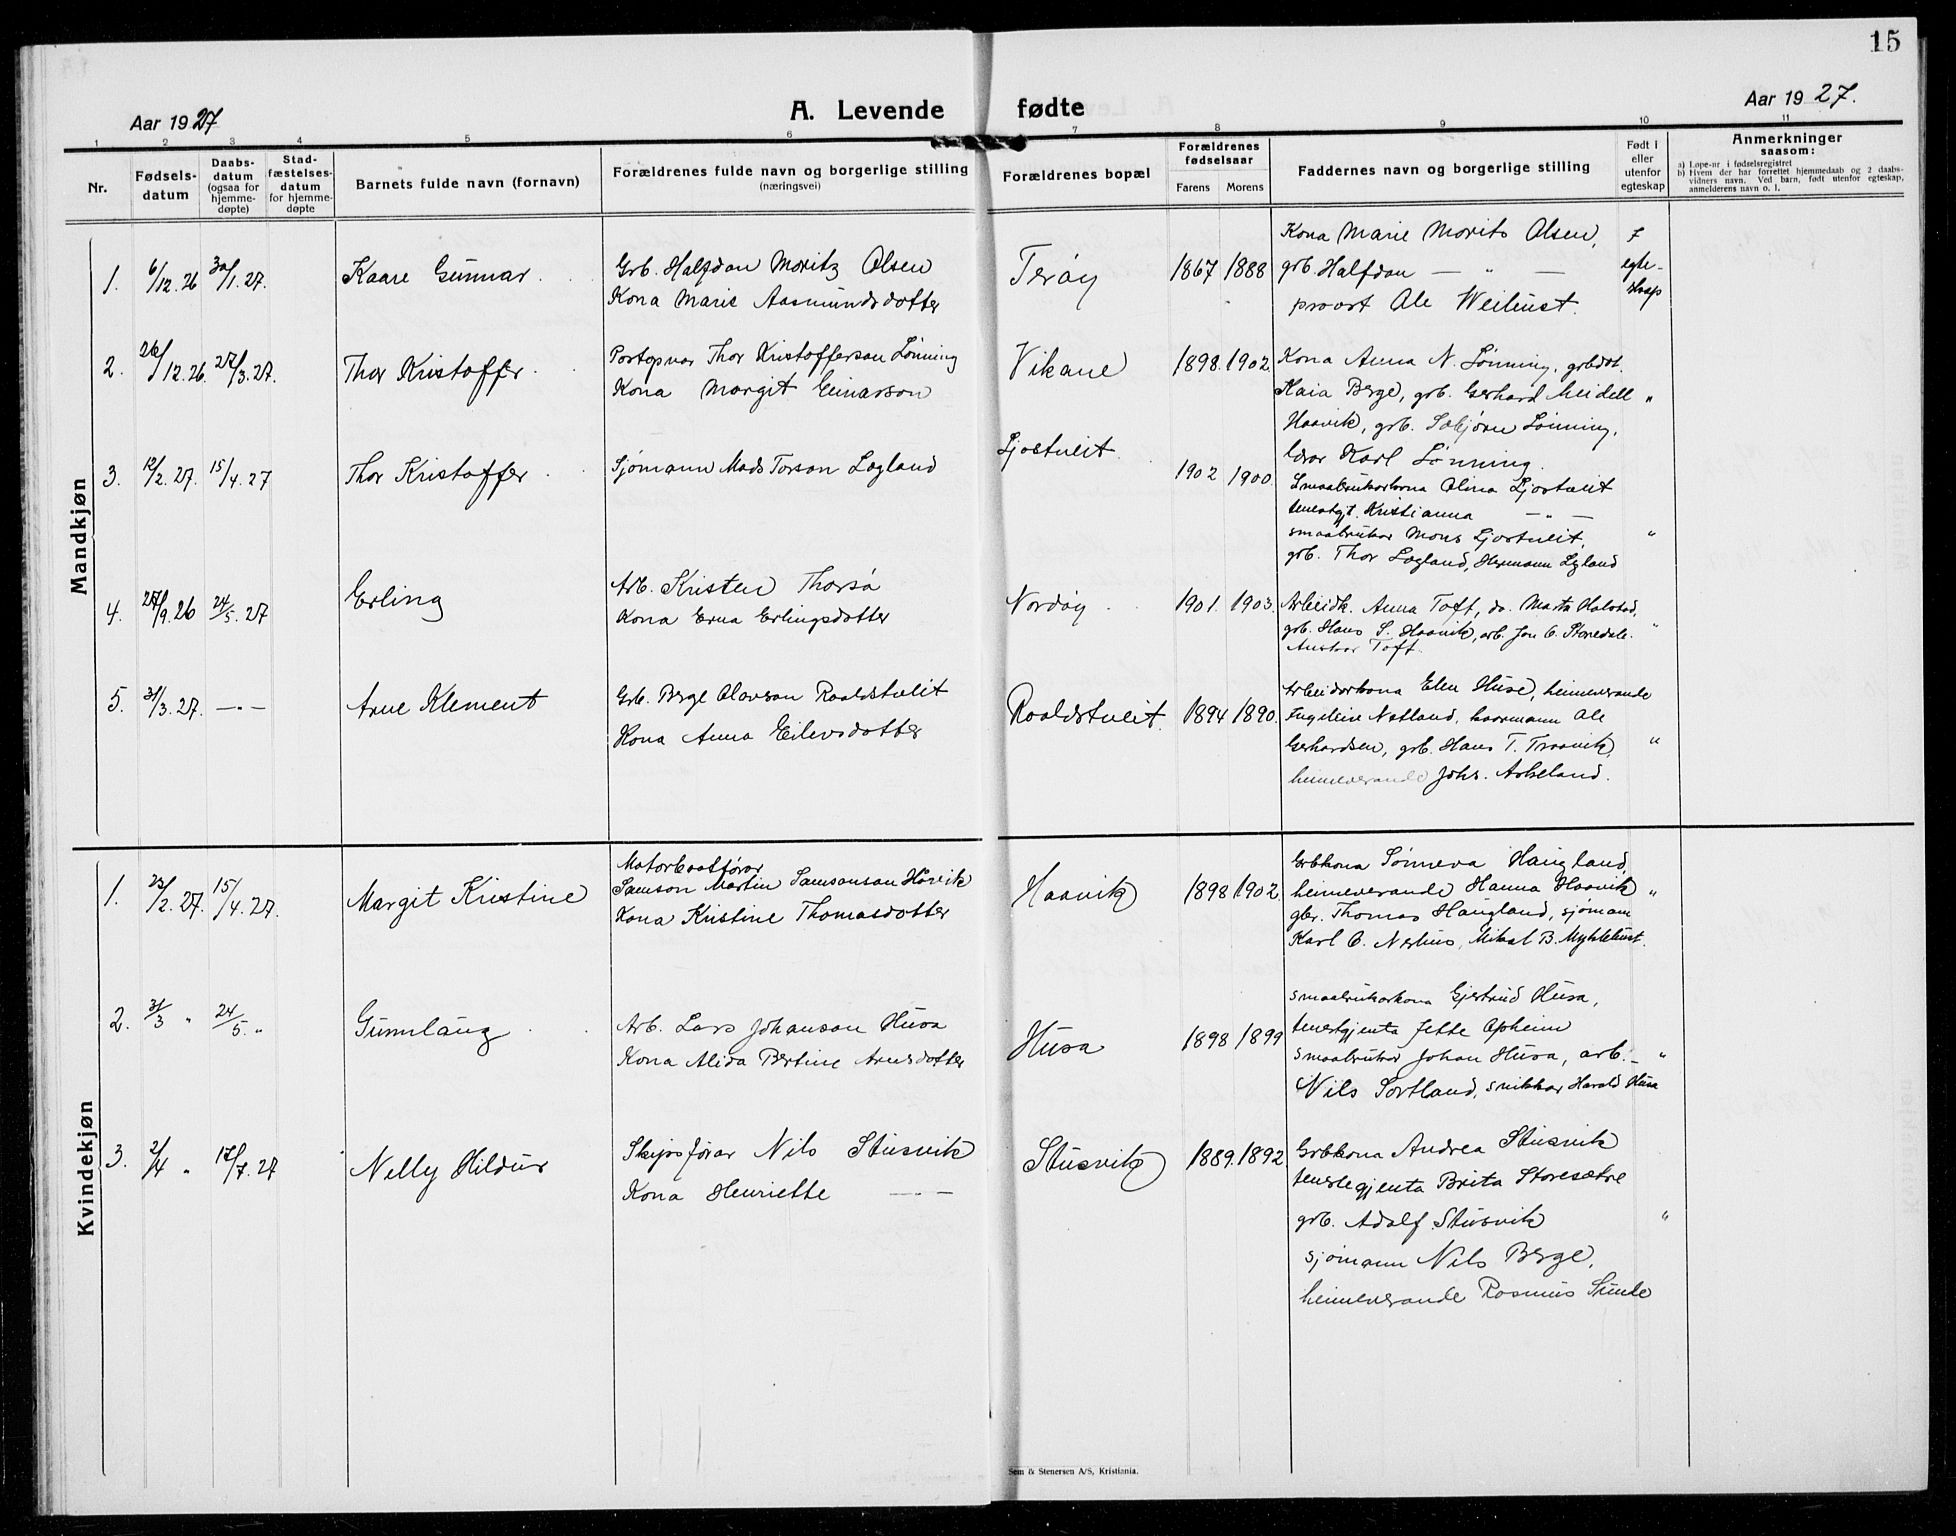 15
Aar 1927
A. Levende fødte
Aar 1927.
1 2 3 4 5 6 7 8 9 10 11
Nr.
Fødsels-
datum
Daabs-
datum
(ogsaa for
hjemme-
døpte)
Stad-
fæstelses-
datum
for hjemme-
døpte
Barnets fulde navn (fornavn)
Forældrenes fulde navn og borgerlige stilling
(næringsvei)
Forældrenes bopæl
Forældrenes
fødselsaar
Farens Morens
Faddernes navn og borgerlige stilling
Født i
eller
utenfor
egteskap
Anmerkninger
saasom:
a) Løpe-nr i fødselsregistret
b) Hvem der har forrettet hjemmedaab og 2 daabs-
vidners navn. Ved barn, født utenfor egteskap,
anmelderens navn o. l.
Mandkjøn
1. 6/12.26 30/1.27. Kaare Gunnar
Grb. Halfdan Moritz Olsen
Kona Marie Aasmundsdotter
Terøy 1867 1888
Kona Marie Morits Olsen,
grb. Halfdan — " —
provst Ole Weilust.
f
egte-
skap
2. 26/12.26. 27/3.27. Thor Kristoffer
Postopnar Thor Kristofferson Lønning
Kona Margit Einarson
Vikane 1898. 1902.
Kona Anna N. Lønning, grbdot.
Kaia Berge, grb. Gerhard Meidell "
Haavik, grb. Sæbjørn Lønning,
lærar Karl Lønning.
3. 12/2.27. 15/4.27 Thor Kristoffer
Sjømann Mads Torson Løgland
Ljostveit 1902 1900.
Smaabrukarkona Olina Ljostveit
tenestgjt. Kristianna — " —
smaabrukar Mons Ljostveit, "
grb. Thor Løgland, Hermann Løgland
4. 27/9.26 24/5.27 Erling
Arb. Kristen Thorsø
Kona Erna Erlingsdotter
Nordøy 1901. 1903.
Arbeidk. Anna Toft, do. Marta Halstad,
grb. Hans S. Haavik, arb. Jon O. Storedale. "
Toft.
5. 31/3.27. — " — Arne Klement
Grb. Berge Olavson Raaldstveit
Kona Anna Eilevsdotter
Raaldstveit. 1894 1890.
Arbeidarkona Elen Huse, heimeverande
Engeline Natland, Ole
Gerhardsen, grb. Hans T. Traavik, "
heimeverande Johs. Askeland.
Kvindekjøn
1. 23/2.27. 15/4.27. Margit Kristine
Motorbaatførar
Samson Martin Samsonson Hårvik
Kona Kristine Thomasdotter
Haavik 1898 1902.
Grbkona Sønneva Haugland,
heimeverande Hanna Haavik "
gbr. Thomas Haugland, sjømann
Karl O. Nerhus, Mikal B. Myklebust.
2. 31/3 " 24/5. " Gunnlaug
Arb. Lars Johanson Husa
Kona Alida Bertine Arnesdotter
Husa 1898 1899
smaabrukarkona Gjertrud Husa,
tenestgjenta Jette Opheim
smaabrukar Johan Husa, arb. "
Nils Sortland, snikkar Harald Husa
3. 2/4 " 17/7.27 Nelly Hildur
Skipsførar Nils Stusvik
Kona Henriette — " —
Stusvik 1889. 1892
Grbkona Andrea Stusvik
tenestegjenta Brita Storesætre
grb. Adolf Stusvik "
sjømann Nils Berge,
heimeverande Rasmus Sunde
Sem & Stenersen A/S, Kristiania.